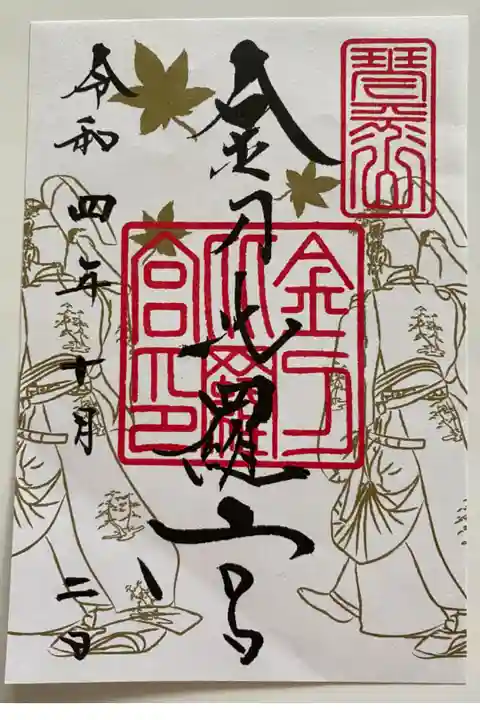 琴平山
金刀比羅宮
金刀
比羅
宮印
令和四年十月二日